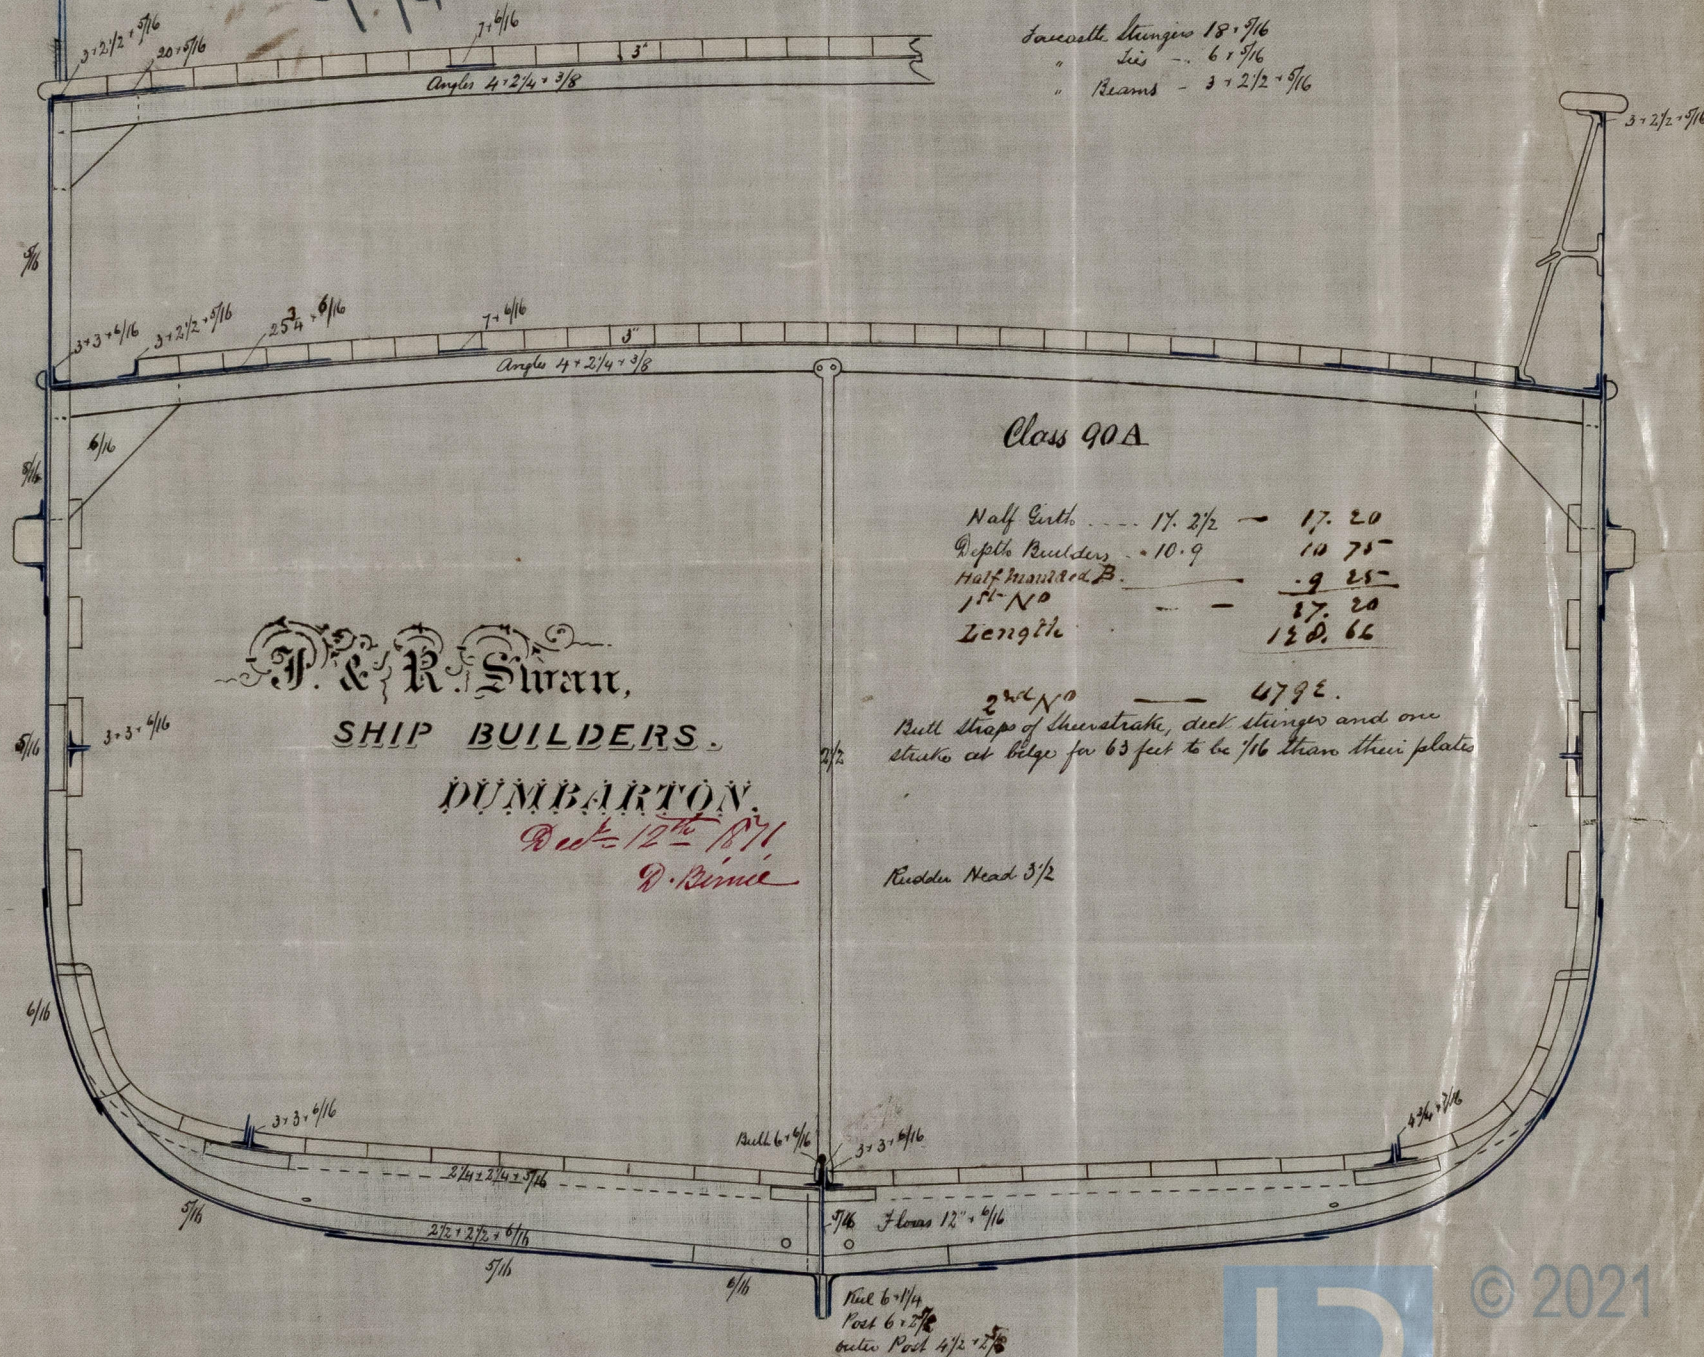 3 + 2 1/2 + 5/16
20 + 5/16
7 + 6/16
3"
Angles 4 + 2 1/4 + 3/8
Forecastle Stringers 18 + 5/16
" Ties - 6 + 5/16
" Beams - 3 + 2 1/2 + 5/16
3 + 2 1/2 + 5/16
5/16
3 + 3 + 6/16
3 + 2 1/2 + 5/16
25 3/4 + 6/16
7 + 6/16
3"
Angles 4 + 2 1/4 + 3/8
6/16
5/16
Class 90A
Half Girth ---- 17. 2 1/2 — 17. 20
Depth Builders - 10.9 10 75
Half Moulded B. — .9 25
1st No - - 37. 20
Length 128. 66
2nd No — 4792.
Butt Straps of Sheerstrake, deck stringer and one
strake at bilge for 63 feet to be 1/16 than their plates
J. & R. Swan,
SHIP BUILDERS.
DUMBARTON.
Decr 12th 1871
D. Birnie
5/16
3 + 3 + 6/16
2 1/2
Rudder Head 3 1/2
6/16
3 + 3 + 6/16
Bulb 6 + 6/16
3 + 3 + 6/16
2 1/4 + 2 1/4 + 5/16
5/16
Floors 12" + 6/16
5/16
2 1/2 + 2 1/2 + 6/16
5/16
6/16
Keel 6 + 1 1/4
Post 6 +
outer Post 4 1/2 +
© 2021